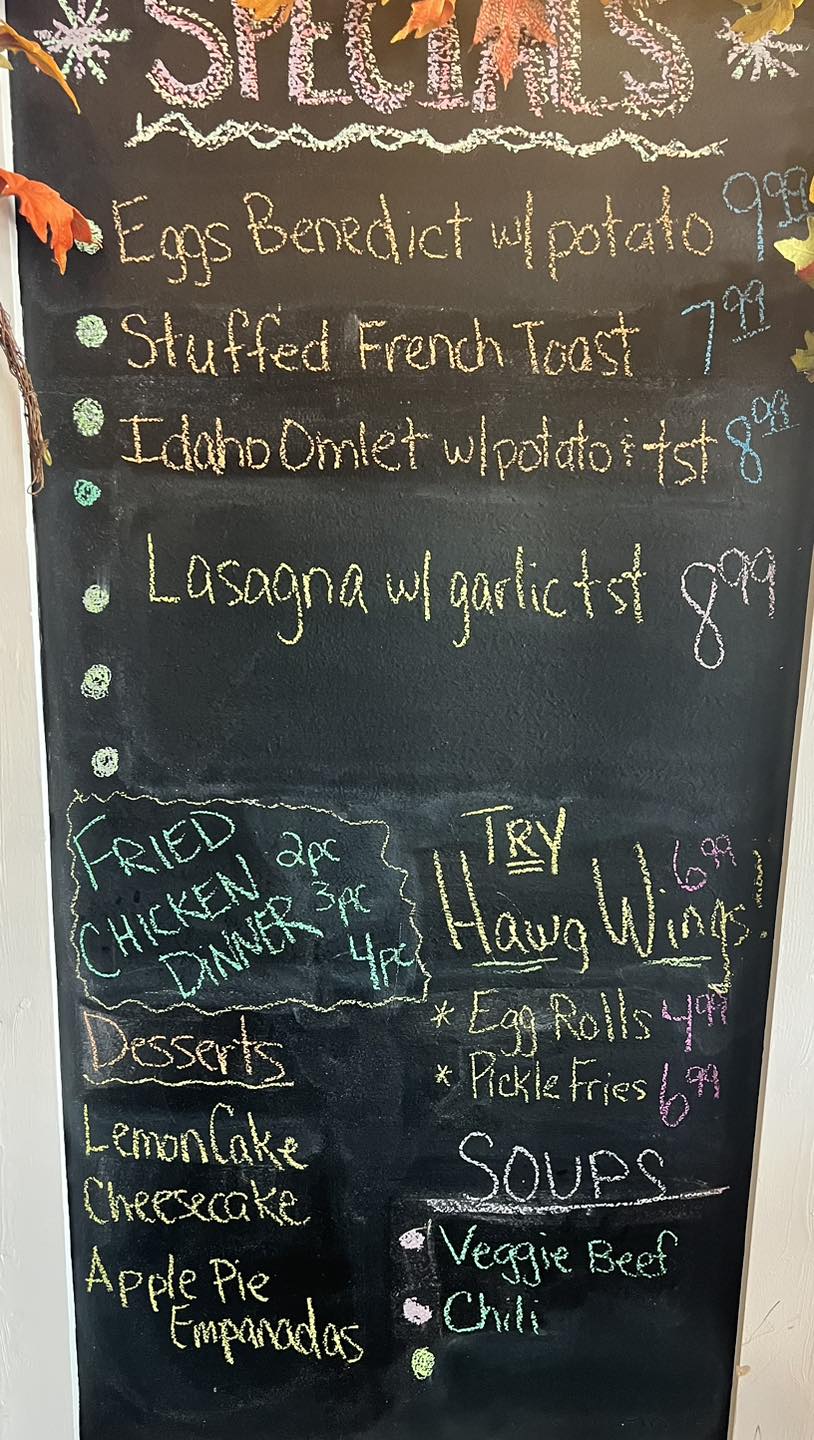 SPECIALS
Eggs Benedict w/potato 9.99
Stuffed French Toast 7.99
Idaho Omlet w/potato & tst 8.99
Lasagna w/ garlic tst 8.99
FRIED 2pc
CHICKEN 3pc
DINNER 4pc
TRY
Hawg Wings! 6.99
* Egg Rolls 4.99
* Pickle Fries 6.99
Desserts
Lemon Cake
Cheesecake
Apple Pie
Empanadas
SOUPS
Veggie Beef
Chili